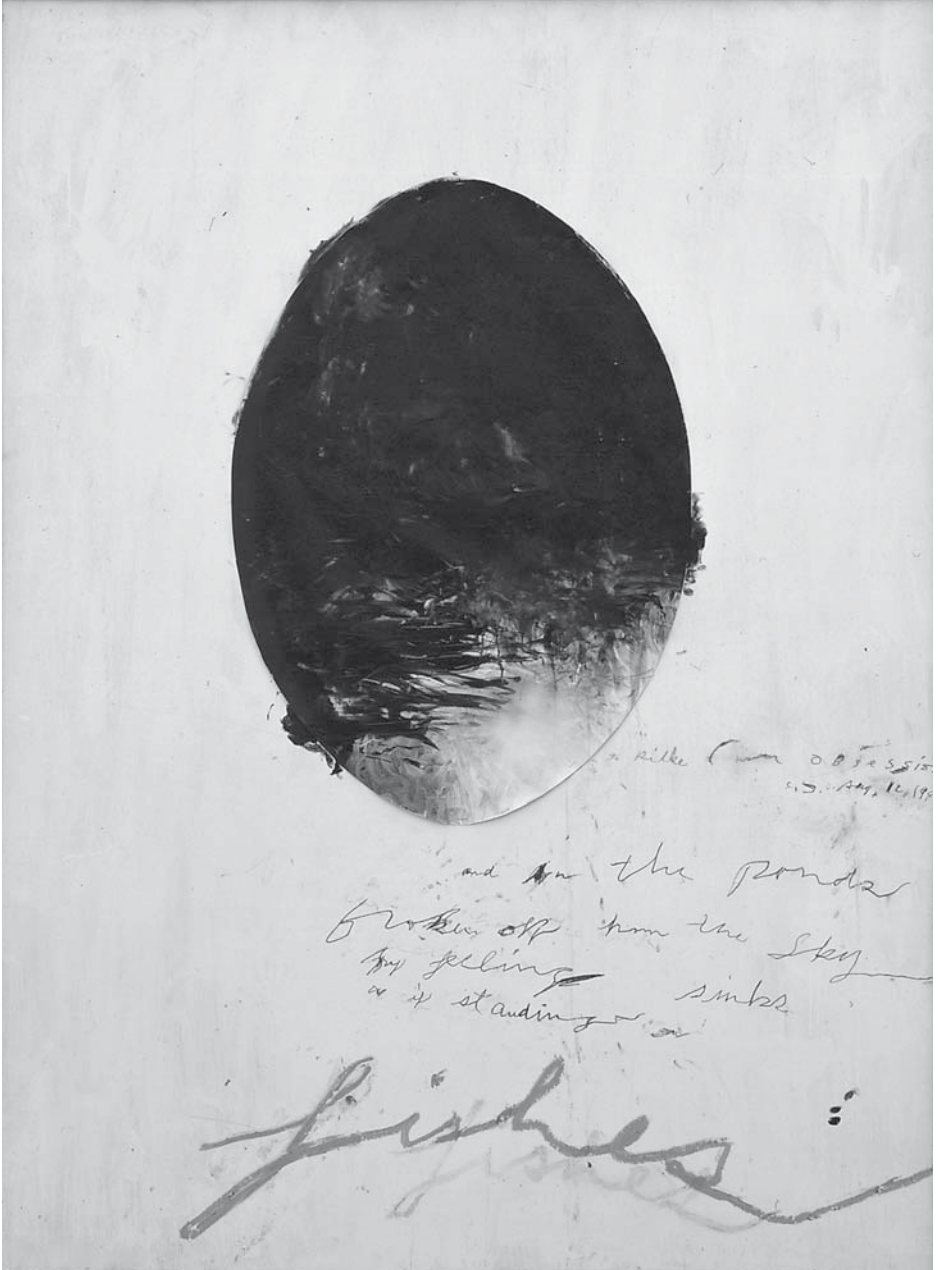 rilke (in obsession
and in the ponds
broken off from the sky
my feeling sinks
as if standing on
fishes